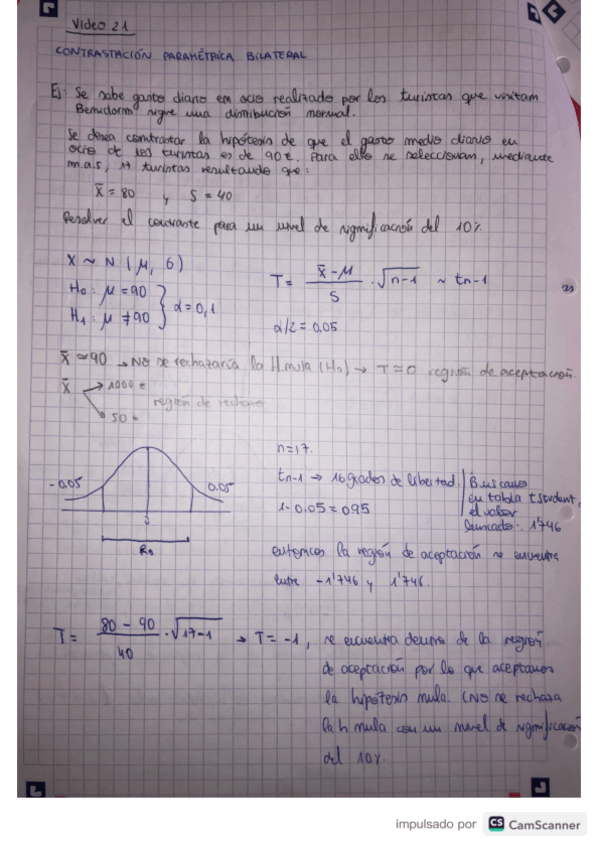 Video 21
CONTRASTACIÓN PARAMÉTRICA BILATERAL
Ej: Se sabe gasto diario en ocio realizado por los turistas que visitan
Benidorm sigue una distribución normal.
Se desea contrastar la hipótesis de que el gasto medio diario en
ocio de los turistas es de 90€. Para ello se seleccionan, mediante
m.a.s, 17 turistas resultando que:
x̄ = 80 y S = 40
Resolver el contraste para un nivel de significación del 10%
X ~ N (μ, σ)
H₀: μ = 90
H₁: μ ≠ 90 } α = 0,1
T = x̄ - μ / S · √n-1 ~ tn-1
α/2 = 0.05
x̄ ≃ 90 → NO se rechazaría la H.nula (H₀) → T ≃ 0 región de aceptación.
x̄ → 1000 €
región de rechazo
→ 50 €
-0.05 0.05
R₀
n=17.
tn-1 → 16 grados de libertad.
1-0.05 = 095
Buscamos
en tabla tstudent,
el valor
buscado: 1'746
entonces la región de aceptación se encuentra
entre -1'746 y 1'746.
T = 80 - 90 / 40 · √17-1 → T = -1, se encuentra dentro de la región
de aceptación por lo que aceptamos
la hipótesis nula. (NO se rechaza
la h nula con un nivel de significación
del 10%.
impulsado por CS CamScanner